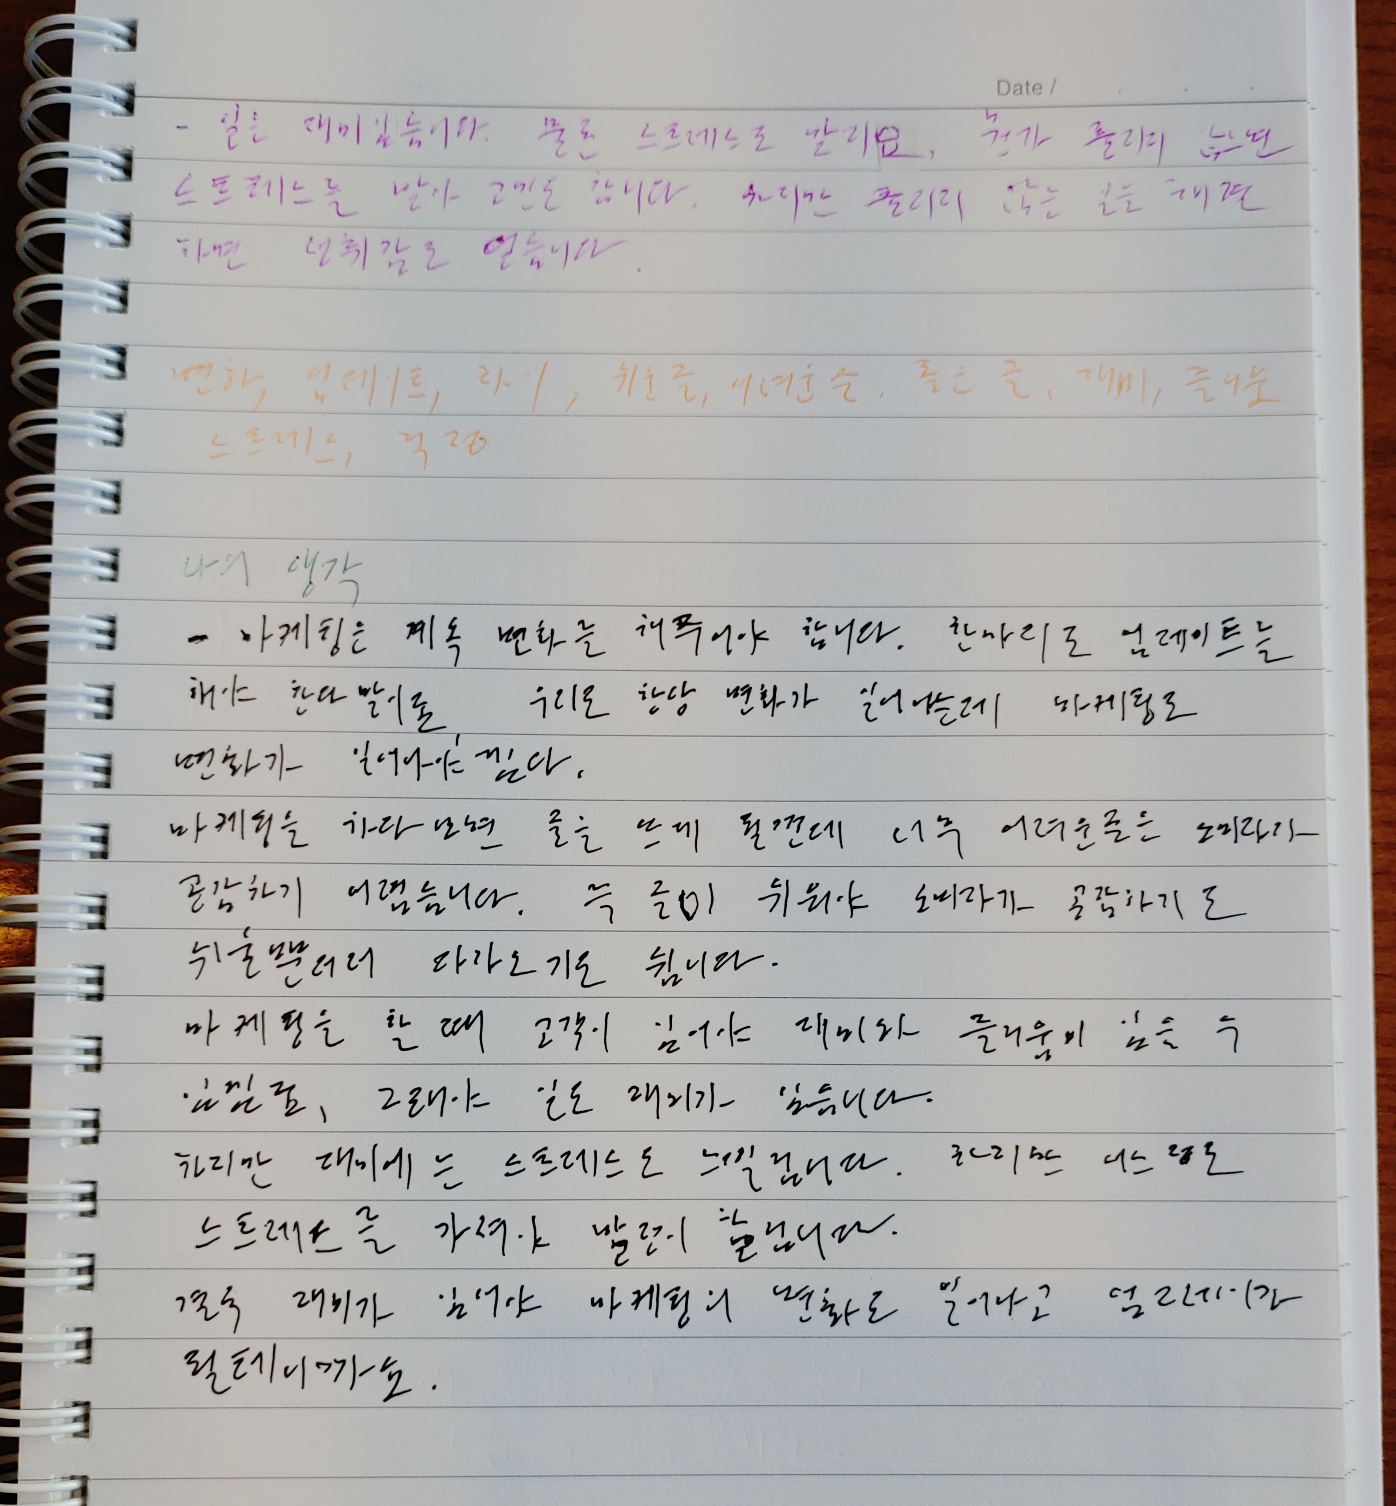 Date /
- 일은 재미있음이다. 물론 스트레스도 말리요, 뭔가 풀리지 않으면
스트레스를 받아 고민도 합니다. 하지만 풀리지 않는 일을 해결
하면 성취감도 얻습니다.
변화, 업데이트, 차이, 쉬운글, 어려운글, 좋은 글, 재미, 즐거움
스트레스, 걱정
나의 생각
- 마케팅은 계속 변화를 해주어야 합니다. 한마디로 업데이트를
해야 한다 말이죠 우리도 항상 변화가 일어나는데 마케팅도
변화가 일어나야 된다.
마케팅을 하다보면 글을 쓰게 될껀데 너무 어려운글은 소비자가
공감하기 어렵습니다. 즉 글이 쉬워야 소비자가 공감하기도
쉬울뿐더러 다가오기도 쉽니다.
마케팅을 할 때 고객이 있어야 재미와 즐거움이 있을 수
있겠죠, 그래야 일도 재미가 있습니다.
하지만 재미에는 스트레스도 걸립니다. 하지만 어느정도
스트레스를 가져야 발전이 할겁니다.
결국 재미가 있어야 마케팅의 변화도 일어나고 업그레이가
될테니까요.